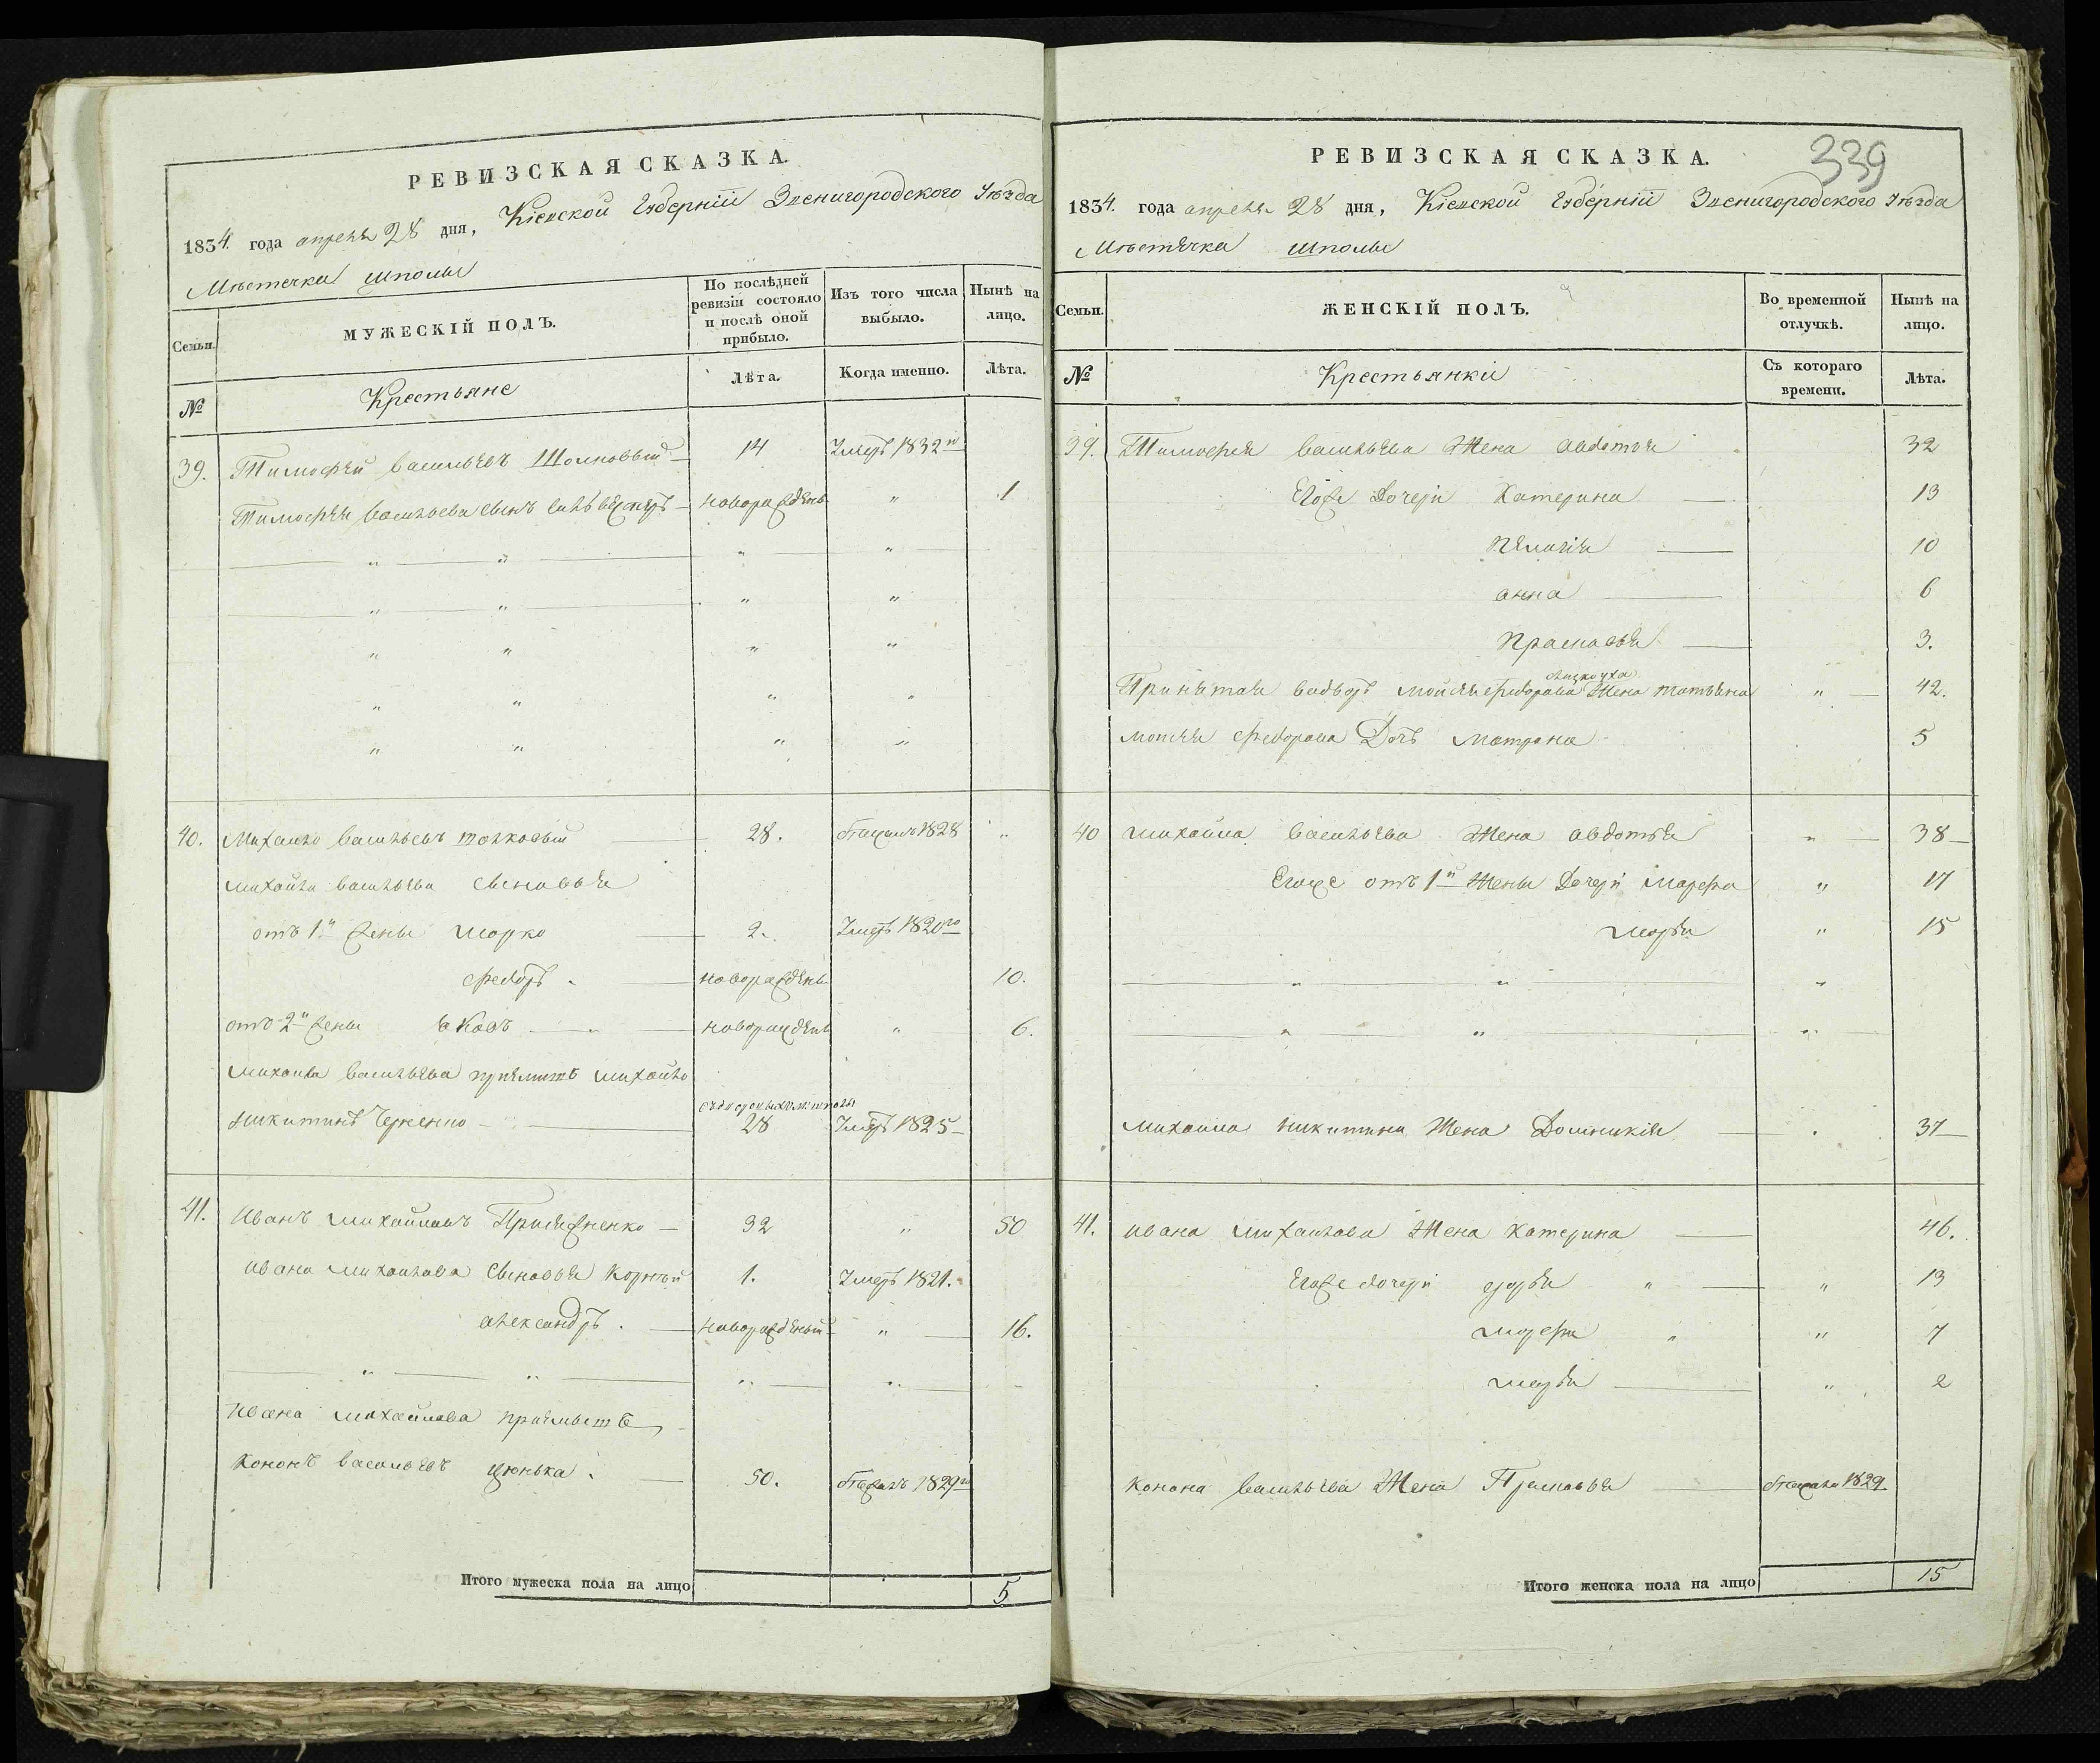 РЕВИЗСКАЯ СКАЗКА.
1834. года апреля 28 дня, Кіевской Губерніи Звенигородского Уѣзда
Мѣстечка Шполы
Семьи.
МУЖЕСКІЙ ПОЛЪ.
По послѣдней ревизіи состояло и послѣ оной прибыло.
Изъ того числа выбыло.
Нынѣ на лицо.
№
Крестьяне
Лѣта.
Когда именно.
Лѣта.
39. Тимофей Васильевъ 14 Умеръ 1832го
Тимофея Васильева сынъ новорожденъ " 1
" " " "
" " " "
" " " "
" " " "
" " " "
40. Михайло Васильевъ 28. 1828 "
Михайла Васильева сыновья
отъ 1й жены Марко 2. Умеръ 1820го
Федоръ новорожденъ 10.
отъ 2й жены Яковъ новорожденъ " 6.
Михайла Васильева приймитъ Михайло
Никитинъ 28 Умеръ 1825
41. Иванъ Михайловъ Приляженко 32 " 50
Ивана Михайлова сыновья Корній 1. Умеръ 1821.
Александръ новорожденый " 16.
" " " "
Ивана Михайлова приймытъ
Кононъ Васильевъ 50. 1829го
Итого мужеска пола на лицо 5
339
РЕВИЗСКАЯ СКАЗКА.
1834. года апреля 28 дня, Кіевской Губерніи Звенигородского Уѣзда
Мѣстечка Шполы
Семьи.
ЖЕНСКІЙ ПОЛЪ.
Во временной отлучкѣ.
Нынѣ на лицо.
№
Крестьянки
Съ котораго времени.
Лѣта.
39. Тимофея Васильева Жена Авдотья 32
Егоже Дочери Катерина 13
Пелагія 10
Анна 6
Прасковья 3.
Принятая Моисея Федорова Жена Татьяна " 42.
Моисея Федорова Дочь Матрона 5
40 Михайла Васильева Жена Авдотья " 38
Егоже отъ 1й Жены Дочери Марфа " 17
Марья " 15
" " "
" " "
Михайла Никитина Жена Домникія 37
41. Ивана Михайлова Жена Катерина 46.
Егоже дочери " " 13
Марфа " " 7
Марья " 2
Конона Васильева Жена Прасковья 1829.
Итого женска пола на лицо 15